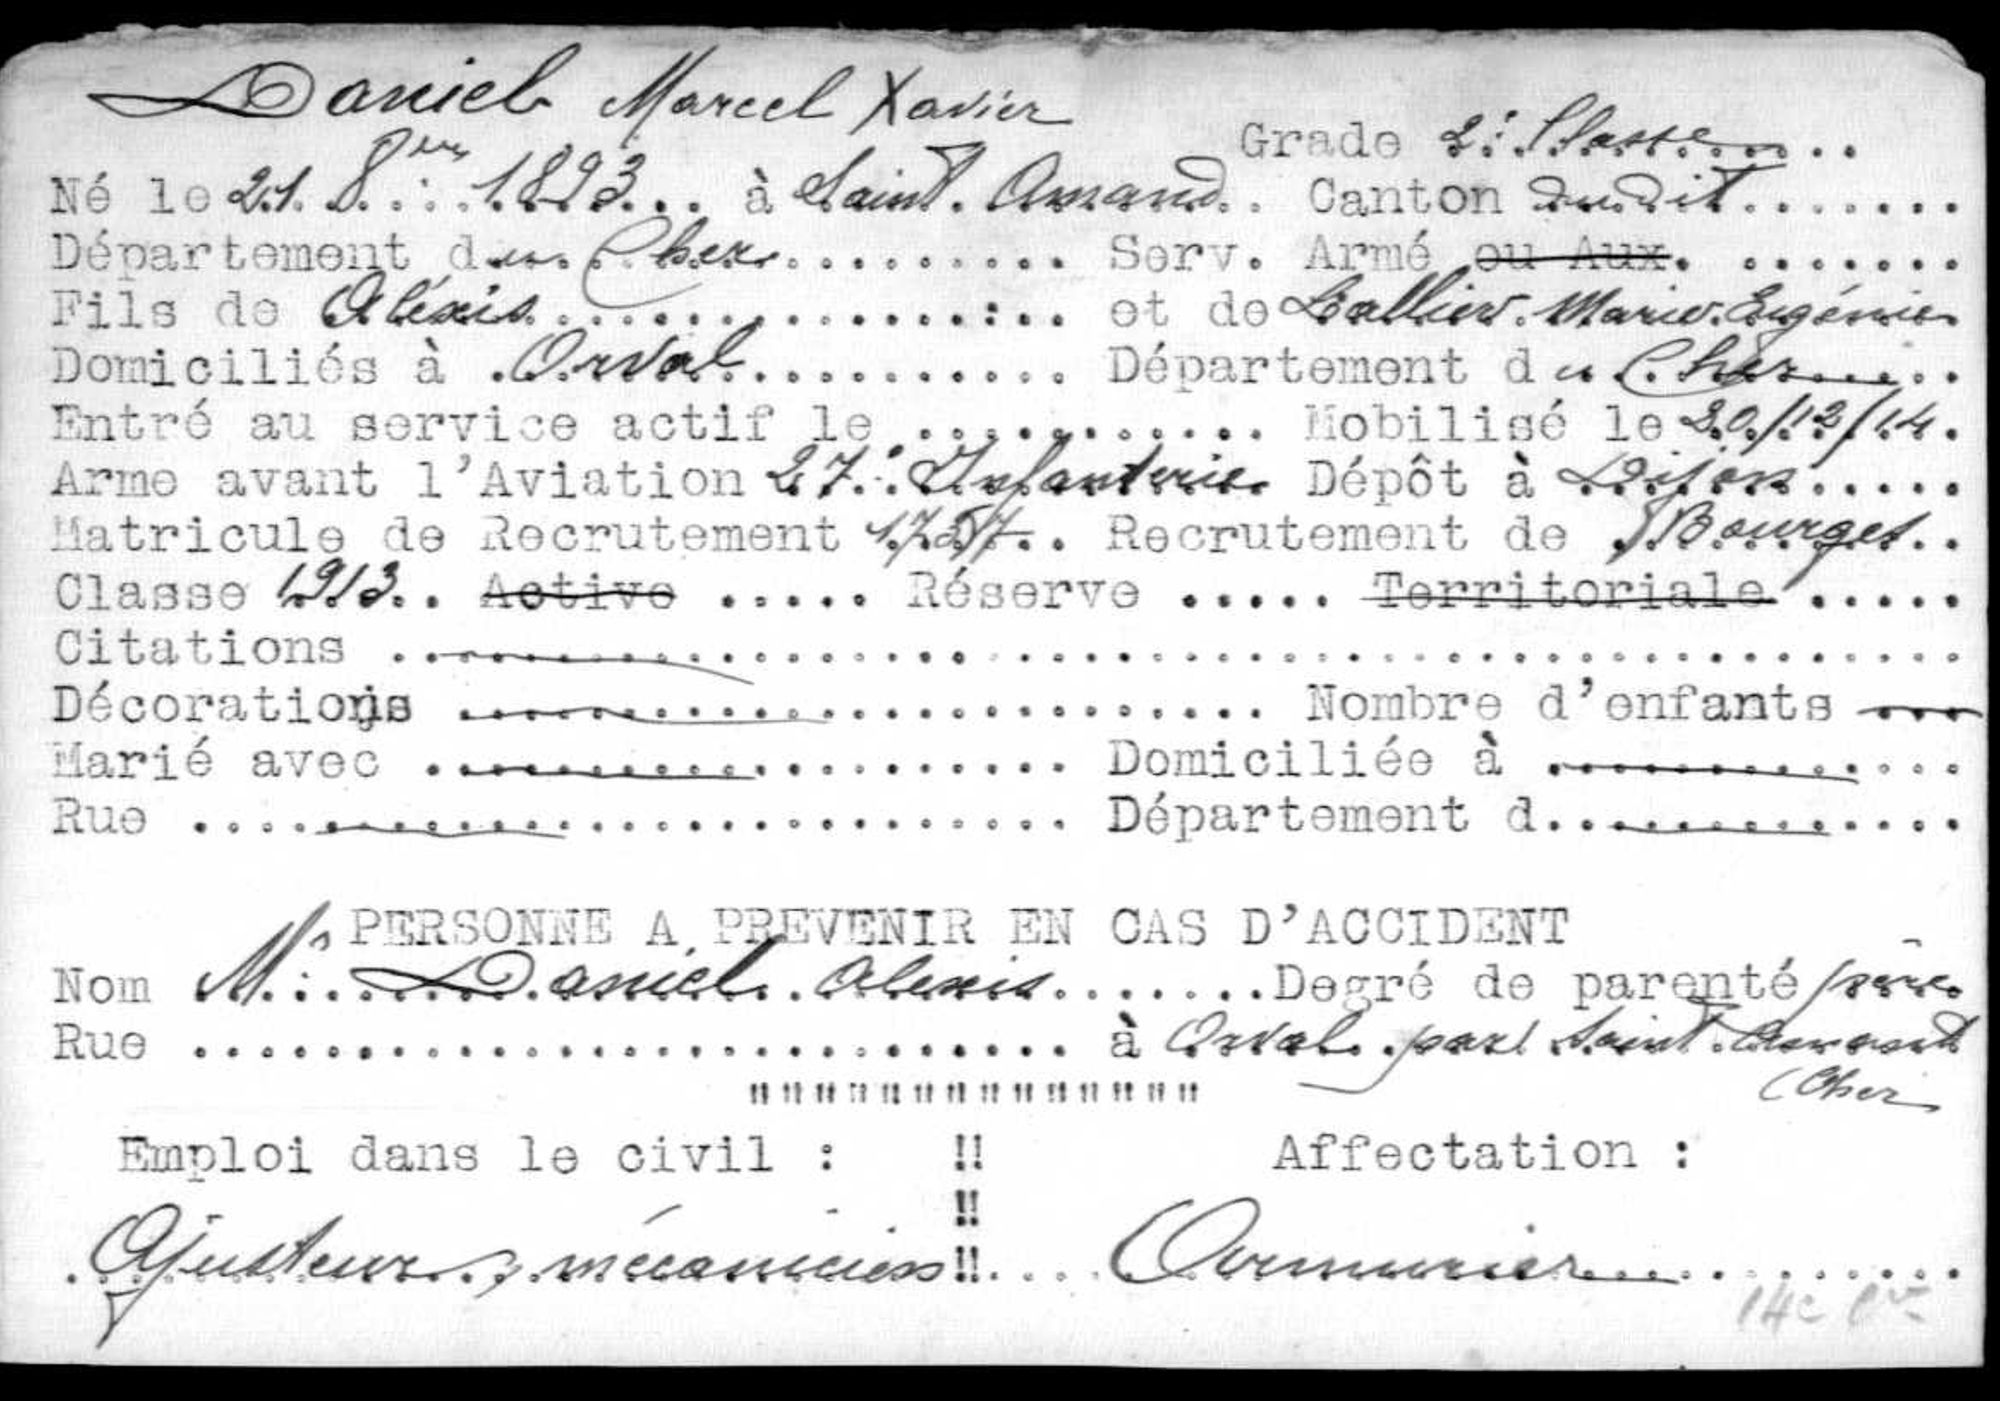 Daniel Marcel Xavier
Grade 2è Classe
Né le 21 8bre 1893 à Saint Amand Canton dudit
Département du Cher Serv. Armé ou Aux.
Fils de Aléxis et de Lallier Marie Eugénie
Domiciliés à Orval Département du Cher
Entré au service actif le Mobilisé le 20/12/14
Arme avant l'Aviation 27è Infanterie Dépôt à Dijon
Matricule de Recrutement Recrutement de Bourges
Classe 1913 Active Réserve Territoriale
Citations
Décorations Nombre d'enfants
Marié avec Domiciliée à
Rue Département d
PERSONNE A PREVENIR EN CAS D'ACCIDENT
Nom Mr Daniel Alexis Degré de parenté père
Rue à Orval par Saint Amand
(Cher
"""""""""""""" 
Emploi dans le civil : !! Affectation :
!!
Ajusteur mécanicien !! Armurier